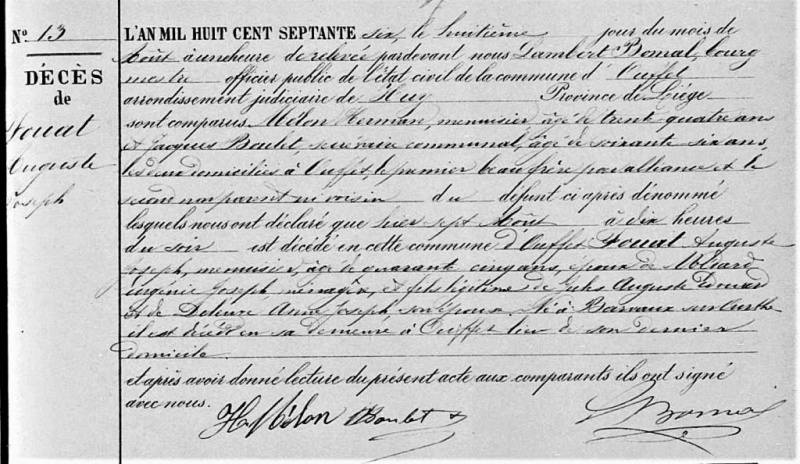 N° 13
DÉCÈS
de
Fouat
Auguste
Joseph
L'AN MIL HUIT CENT SEPTANTE six, le huitième jour du mois de
Août à une heure de relevée pardevant nous Lambert Bomal, bourg
mestre officier public de l'état civil de la commune d' Ouffet
arrondissement judiciaire de Huy Province de Liége
sont comparus Mélon Herman, menuisier âgé de trente quatre ans
et Jacques Boulet secrétaire communal, âgé de soixante six ans,
les deux domiciliés à Ouffet, le premier beau frère par alliance et le
second non parent ni voisin du défunt ci après dénommé
lesquels nous ont déclaré que hier sept Août à dix heures
du soir est décédé en cette commune d'Ouffet Fouat Auguste
Joseph, menuisier, âgé de quarante cinq ans, époux de
Joseph ménagère, et fils légitime de Auguste Edouard
et de Anne Joseph, son épouse. Né à sur Ourthe
il est décédé en sa demeure à Ouffet lieu de son dernier
domicile.
et après avoir donné lecture du présent acte aux comparants ils ont signé
avec nous.
H. Mélon Boulet L. Bomal